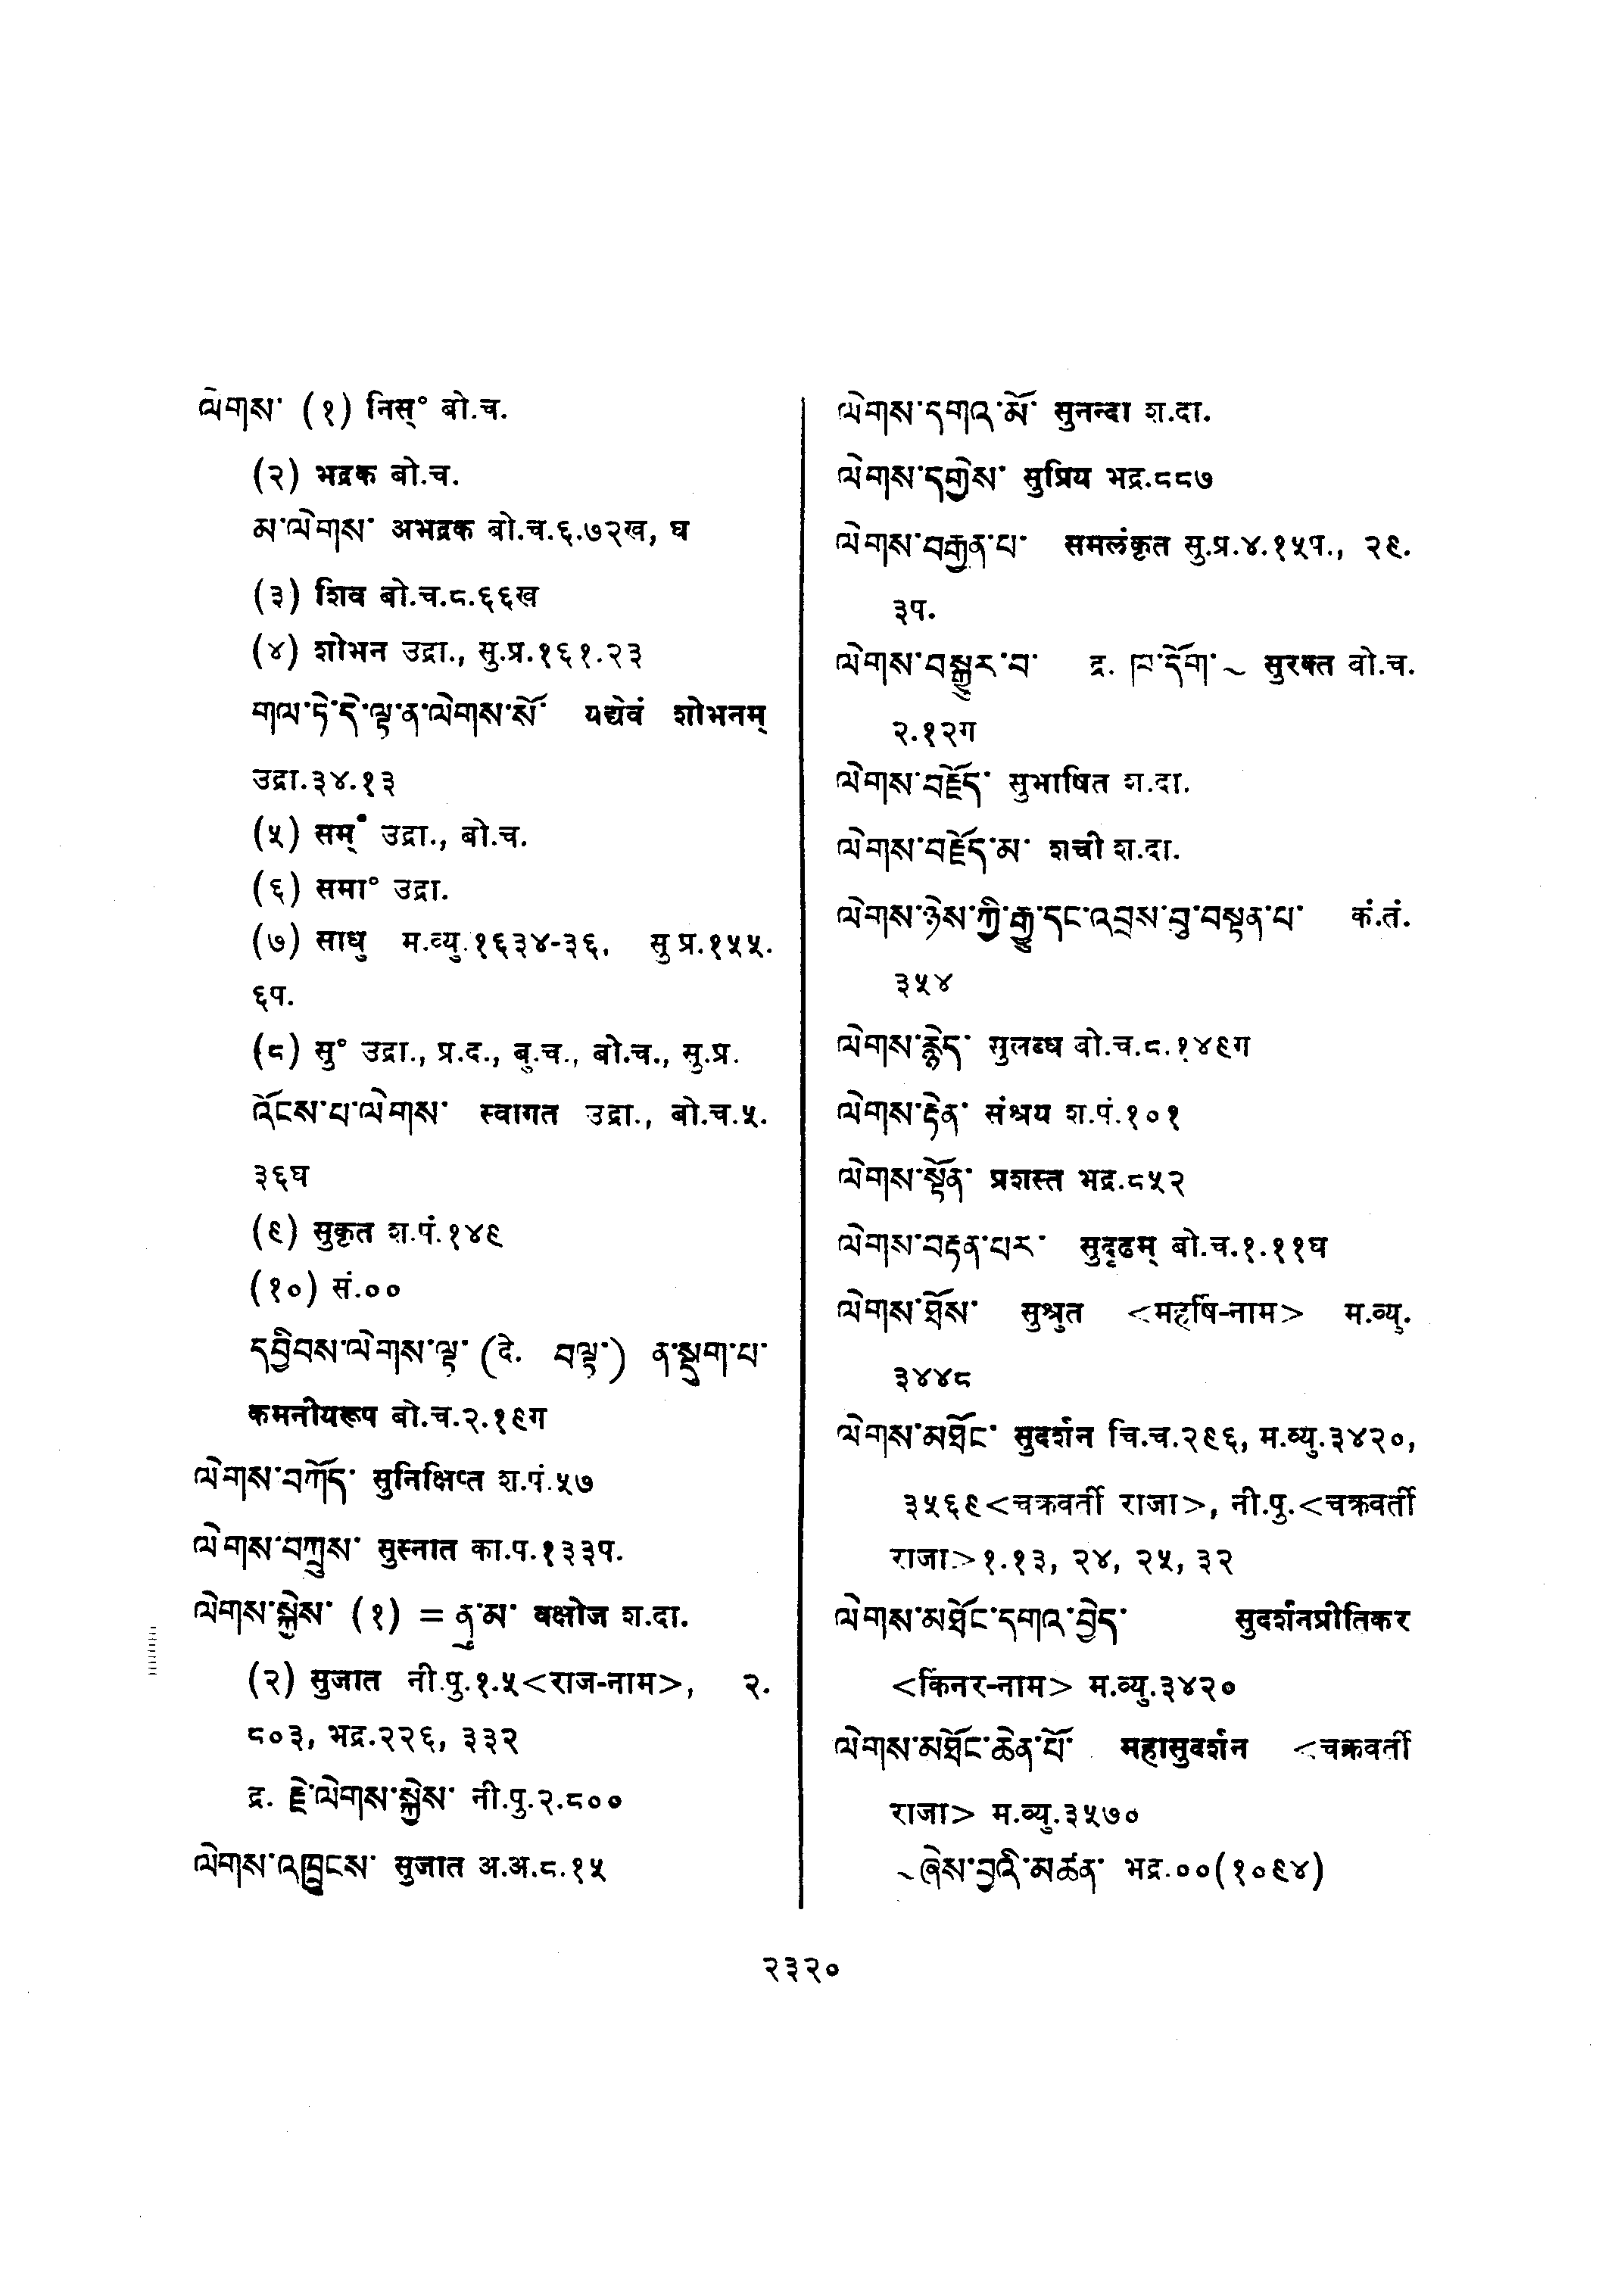 ལེགས་ (१) निस्° बो.च.
(२) भद्रक बो.च.
མ་ལེགས་ अभद्रक बो.च.६.७२ख, घ
(३) शिव बो.च.८.६६ख
(४) शोभन उद्रा., सु.प्र.१६१.२३
གལ་ཏེ་དེ་ལྟ་ན་ལེགས་སོ་ यद्येवं शोभनम्
उद्रा.३४.१३
(५) सम्° उद्रा., बो.च.
(६) समा° उद्रा.
(७) साधु म.व्यु.१६३४-३६, सु प्र.१५५.
६प.
(८) सु° उद्रा., प्र.द., बु.च., बो.च., सु.प्र.
འོངས་པ་ལེགས་ स्वागत उद्रा., बो.च.५.
३६घ
(९) सुकृत श.पं.१४९
(१०) सं.००
དབྱིབས་ལེགས་ལྟ་ (दे. བལྟ་) ན་སྡུག་པ་
कमनीयरूप बो.च.२.१९ग
ལེགས་བཀོད་ सुनिक्षिप्त श.पं.५७
ལེགས་བཀྲུས་ सुस्नात का.प.१३३प.
ལེགས་སྐྱེས་ (१) = ནུ་མ་ वक्षोज श.दा.
(२) सुजात नी.पु.१.५<राज-नाम>, २.
८०३, भद्र.२२६, ३३२
द्र. རྗེ་ལེགས་སྐྱེས་ नी.पु.२.८००
ལེགས་འཁྲུངས་ सुजात अ.अ.८.१५
ལེགས་དགའ་མོ་ सुनन्दा श.दा.
ལེགས་དགྱེས་ सुप्रिय भद्र.८८७
ལེགས་བརྒྱན་པ་ समलंकृत सु.प्र.४.१५प., २९.
३प.
ལེགས་བསྒྱུར་བ་ द्र. ཁ་དོག་ ~ सुरक्त बो.च.
२.१२ग
ལེགས་བརྗོད་ सुभाषित श.दा.
ལེགས་བརྗོད་མ་ शची श.दा.
ལེགས་ཉེས་ཀྱི་རྒྱུ་དང་འབྲས་བུ་བསྟན་པ་ कं.तं.
३५४
ལེགས་རྙེད་ सुलब्ध बो.च.८.१४९ग
ལེགས་རྟེན་ संश्रय श.पं.१०१
ལེགས་སྟོན་ प्रशस्त भद्र.८५२
ལེགས་བརྟན་པར་ सुदृढम् बो.च.१.११घ
ལེགས་ཐོས་ सुश्रुत <महर्षि-नाम> म.व्यु.
३४४८
ལེགས་མཐོང་ सुदर्शन चि.च.२९६, म.व्यु.३४२०,
३५६९<चक्रवर्ती राजा>, नी.पु.<चक्रवर्ती
राजा>१.१३, २४, २५, ३२
ལེགས་མཐོང་དགའ་བྱེད་ सुदर्शनप्रीतिकर
<किंनर-नाम> म.व्यु.३४२०
ལེགས་མཐོང་ཆེན་པོ་ महासुदर्शन <चक्रवर्ती
राजा> म.व्यु.३५७०
~ཞེས་བྱའི་མཚན་ भद्र.००(१०९४)
२३२०